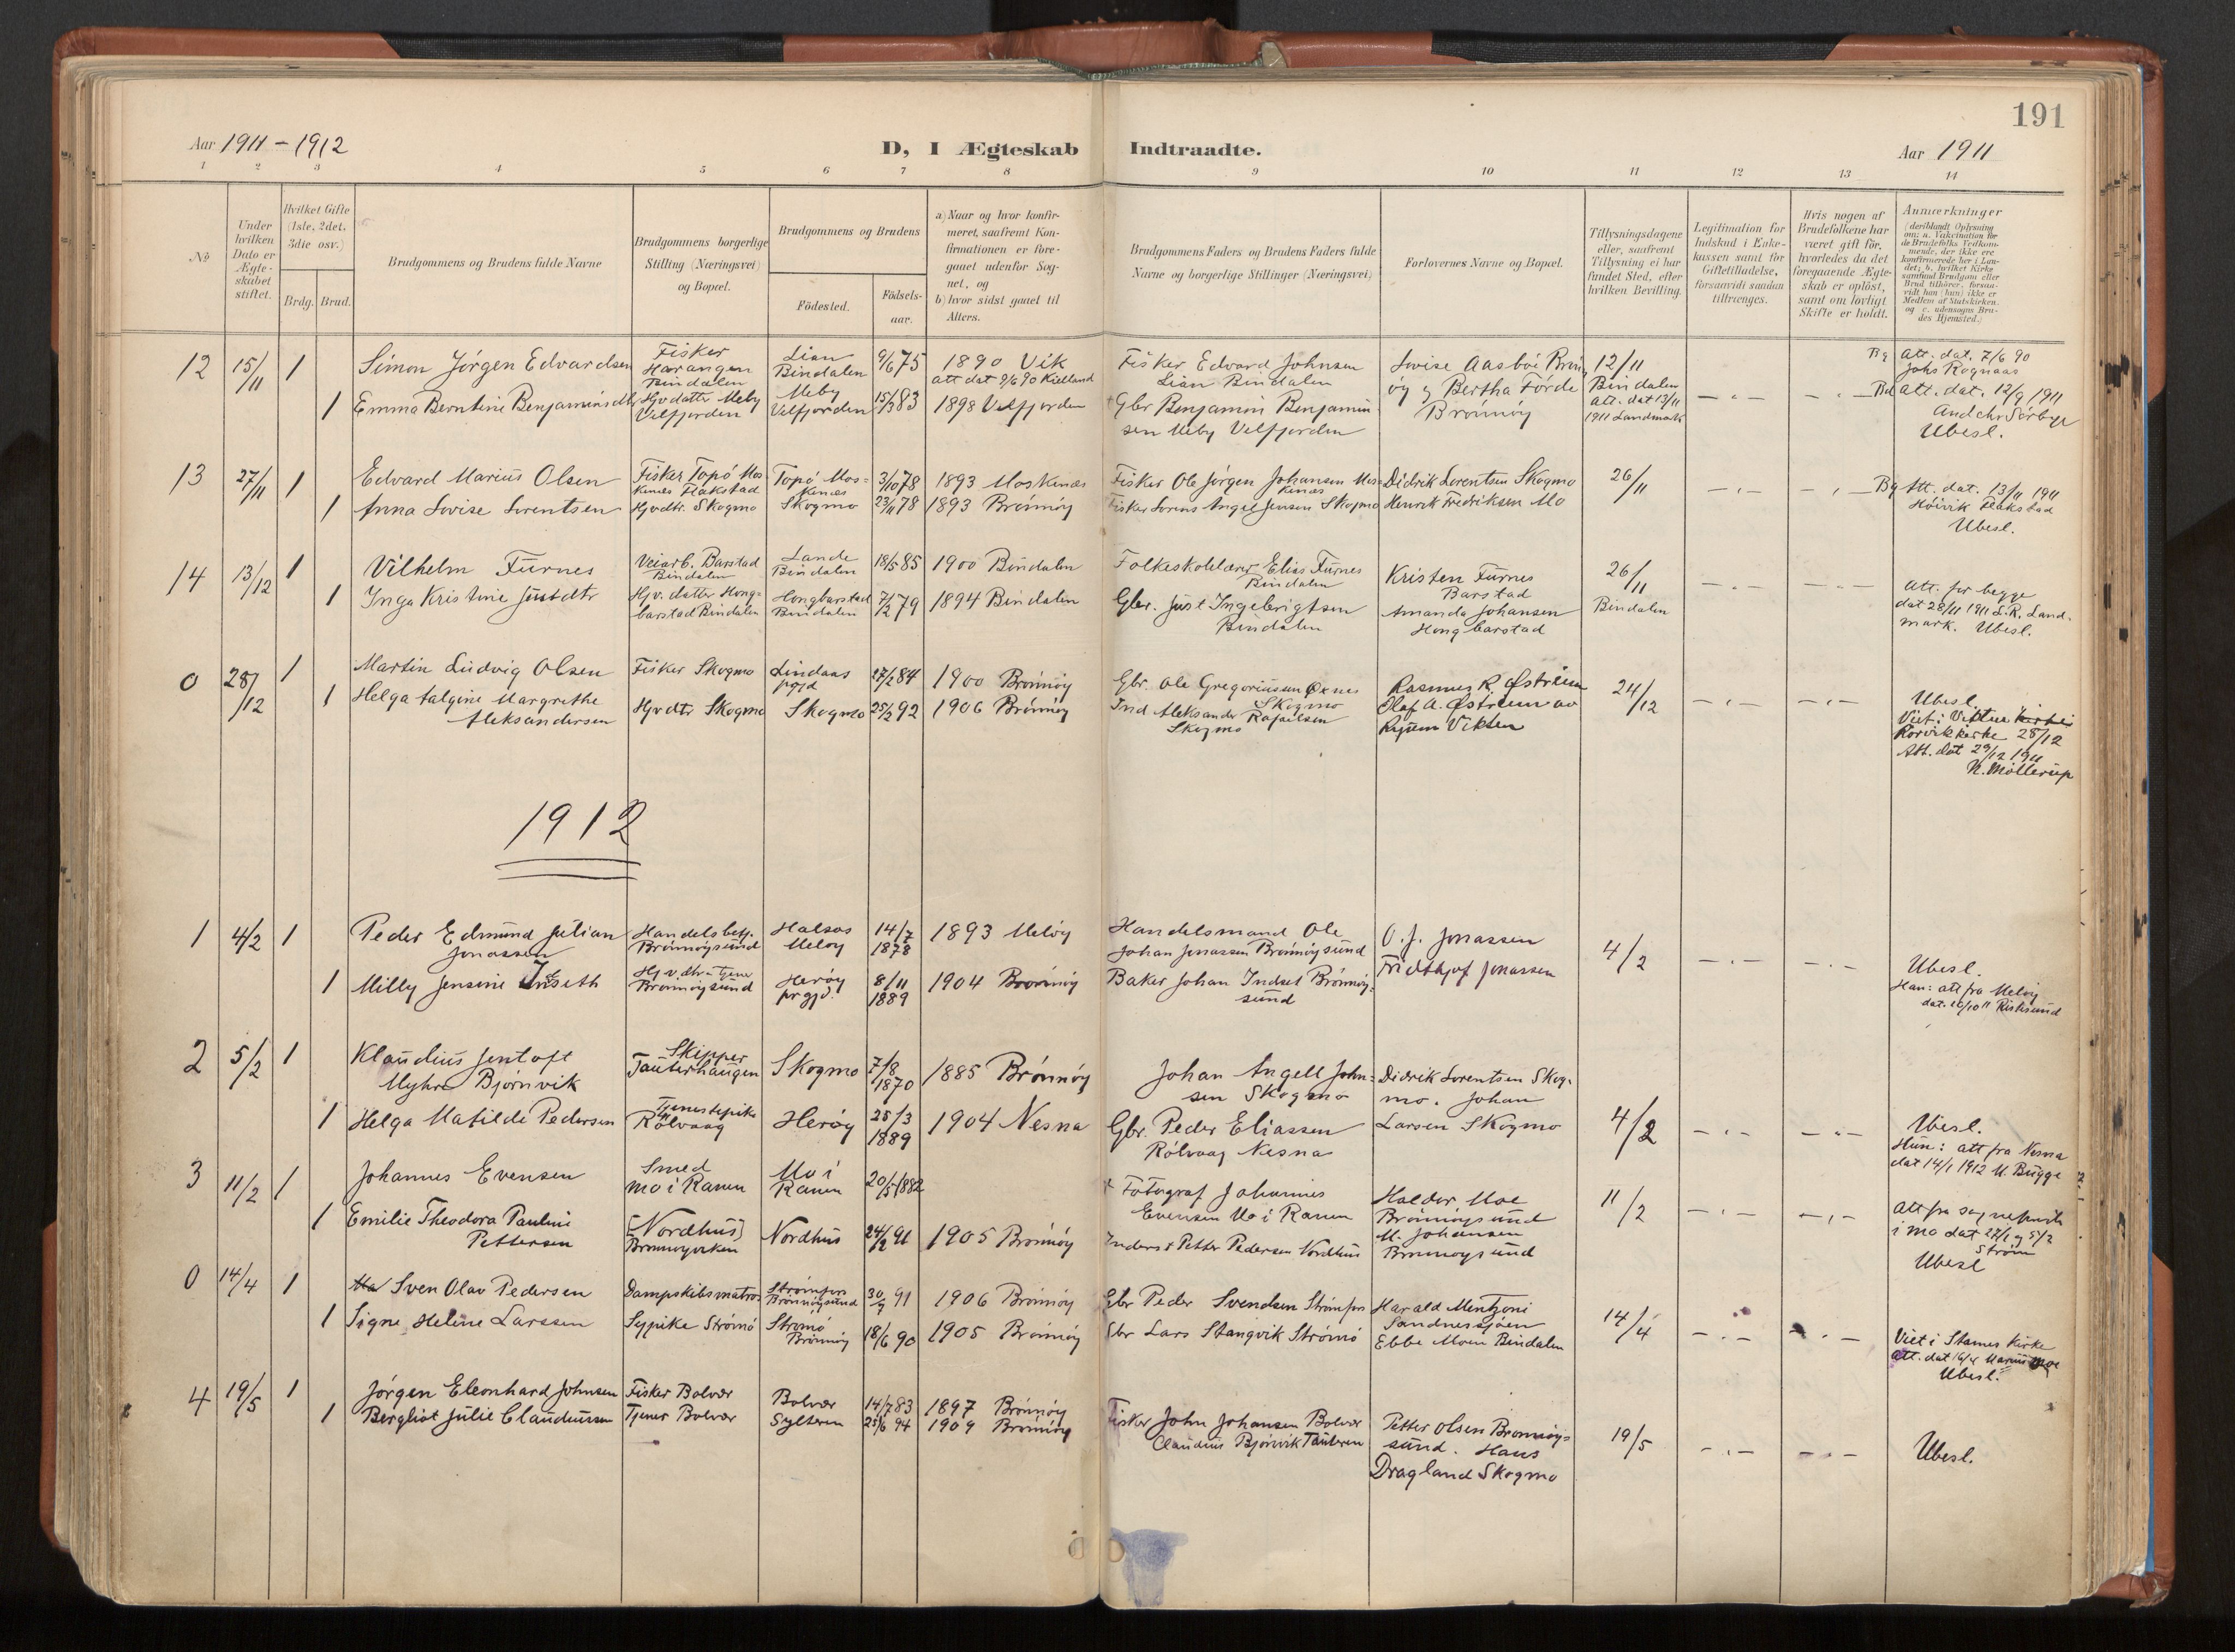 191
Aar 1911 - 1912
D, I Ægteskab Indtraadte.
Aar 1911
1 2 3 4 5 6 7 8 9 10 11 12 13 14
No
Under hvilken Dato er Ægteskabet stiftet.
Hvilket Gifte (1ste, 2det, 3die osv.)
Brdg. Brud.
Brudgommens og Brudens fulde Navne
Brudgommens borgerlige Stilling (Næringsvei) og Bopæl.
Brudgommens og Brudens
Fødested.
Fødselsaar.
a) Naar og hvor konfirmeret, saafremt Konfirmationen er foregaaet udenfor Sognet, og
b) hvor sidst gaaet til Alters.
Brudgommens Faders og Brudens Faders fulde Navne og borgerlige Stillinger (Næringsvei)
Forlovernes Navne og Bopæl.
Tillysningsdagene eller, saafremt Tillysning ei har fundet Sted, efter hvilken Bevilling.
Legitimation for Indskud i Enkekassen samt for Giftetilladelse, forsaavidt saadan tiltrænges.
Hvis nogen af Brudefolkene har været gift før, hvorledes da det foregaaende Ægteskab er opløst, samt om lovligt Skifte er holdt.
Anmærkninger
12 15/11 1 Simon Jörgen Edvardsen
Fisker Harangen Bindalen
Lian Bindalen
9/6 75
1890 Vik
att dat 9/6 90 Kielland
Fisker Edvard Johnsen
Lian Bindalen
Lovise Aasböe Brön
öy og Bertha Förde
Brönnöy
12/11
Bindalen
att. dat 13/11
1911 Landmark
Bg att. dat. 7/6 90
Johs Rognaas
1 Emma Berntine Benjaminsdtr
Hjv datter Meby
Velfjorden
Meby
Velfjorden
15/3 83
1898 Velfjorden
+ Gbr Benjamin Benjamin
sen Meby Velfjorden
Bd att. dat. 12/9 1911
And chr Sörbye
Ubesl.
13 27/11 1 Edvard Marius Olsen
Fisker Topö Mos
kenes Flakstad
Topö Mos-
kenes
3/10 78
1893 Moskenes
Fisker Ole Jörgen Johansen Mos-
kenes
Didrik Lorentsen Skogmo
26/11
Bg Att. dat. 13/11 1911
Höivik Flakstad
Ubesl.
1 Anna Lovise Lorentsen
Hjvdtr. Skogmo
Skogmo
23/11 78
1893 Brönnöy
Fisker Lorens Angel Jensen Skogmo
Henrik Fredriksen Mo
14 13/12 1 Vilhelm Furnes
Veiarb. Barstad
Bindalen
Lande
Bindalen
18/5 85
1900 Bindalen
Folkeskolelærer Elias Furnes
Bindalen
Kristen Furnes
Barstad
26/11
Bindalen
1 Inga Kristine Justdtr
Hjv. datter Hong-
barstad Bindalen
Hongbarstad
Bindalen
7/2 79
1894 Bindalen
Gbr. Just Ingebrigtsen
Bindalen
Amanda Johansen
Hongbarstad
Att. for begge
dat 28/11 1911 L.R. Land-
mark. Ubesl.
0 28/12 1 Martin Ludvig Olsen
Fisker Skogmo
Lindaas
prgd
27/2 84
1900 Brönnöy
Gbr. Ole Gregoriussen Öknes
Skogmo
Rasmus R. Østreim
24/12
1 Helga Talgine Margrethe
Aleksandersen
Hjvdtr Skogmo
Skogmo
25/2 92
1906 Brönnöy
Ind Aleksander Rafaelsen
Skogmo
Olaf A. Østreim av
Rysum Vikten
Ubesl.
Viet i Vikten
Rorvik kirke 28/12
Att. dat 29/12 1911
N. Möllerup
1912
1 4/2 1 Peder Edmund Julian
Jonassen
Handelsbetj.
Brönnöysund
Halsos
Melöy
14/7
1878
1893 Melöy
Handelsmand Ole
Johan Jonassen Brönnöysund
O. J. Jonassen
4/2
1 Milly Jensine Inseth
Hj v. dtr
Brönnöysund
Heröy
prgjd.
8/11
1889
1904 Brönnöy
Baker Johan Indset Brönnöy-
sund
Fridthjof Jonassen
Ubesl.
Han: att fra Melöy
dat. 10/10 11
2 5/2 1 Klaudius Jentoft
Myhre Bjørnvik
Skipper
Tauterhaugen
Skogmo
7/8
1870
1885 Brönnöy
Johan Angell John-
sen Skogmo
Didrik Lorentsen Skog-
mo. Johan
Larsen Skogmo
4/2
1 Helga Matilde Pedersen
Tjenestepike
Rölvaag
Heröy
25/3
1889
1904 Nesna
Gbr. Peder Eliassen
Rölvaag Nesna
Ubesl.
Hun: att fra Nesna
dat 14/1 1912 M Bugge
3 11/2 1 Johannes Evensen
Smed
Mo i Ranen
Mo i
Ranen
20/5 1882
+ Fotograf Johannes
Evensen Mo i Ranen
Haldor Moe
Brönnöysund
11/2
1 Emilie Theodora Pauline
Pettersen
[Nordhus]
Nordhus
24/2 91
1905 Brönnöy
Inderst Petter Pedersen Nordhus
M. Johansen
Brönnöysund
att fra sogneprest
i Mo dat 27/1 og 5/2
Ström
Ubesl
0 14/4 1 Sven Olav Pedersen
Dampskibsmatros
Strömfors
Brönnöysund
30/9 91
1906 Brönnöy
Gbr Peder Svendsen Strömfors
Harald Mentzoni
Sandnessjöen
14/4
1 Signe Helene Larssen
Sypike Strömö
Strömö
Brönnöy
18/6 90
1905 Brönnöy
Gbr Lars Stangvik Strömö
Ebbe Moen Bindalen
Viet i Stamnes Kirke
att. dat 16/4 Marius Moe
Ubesl.
4 19/5 1 Jörgen Eleonhard Johnsen
Fisker Bolvær
Bolvær
14/7 83
1897 Brönnöy
Fisker John Johansen Bolvær
Petter Olsen Brönnöy-
sund. Hans
Dragland Skogmo
19/5
1 Bergliot Julie Claudiussen
Tjener Bolvær
Sylteren
25/6 94
1909 Brönnöy
Claudius Bjørnvik Tauteren
Ubesl.